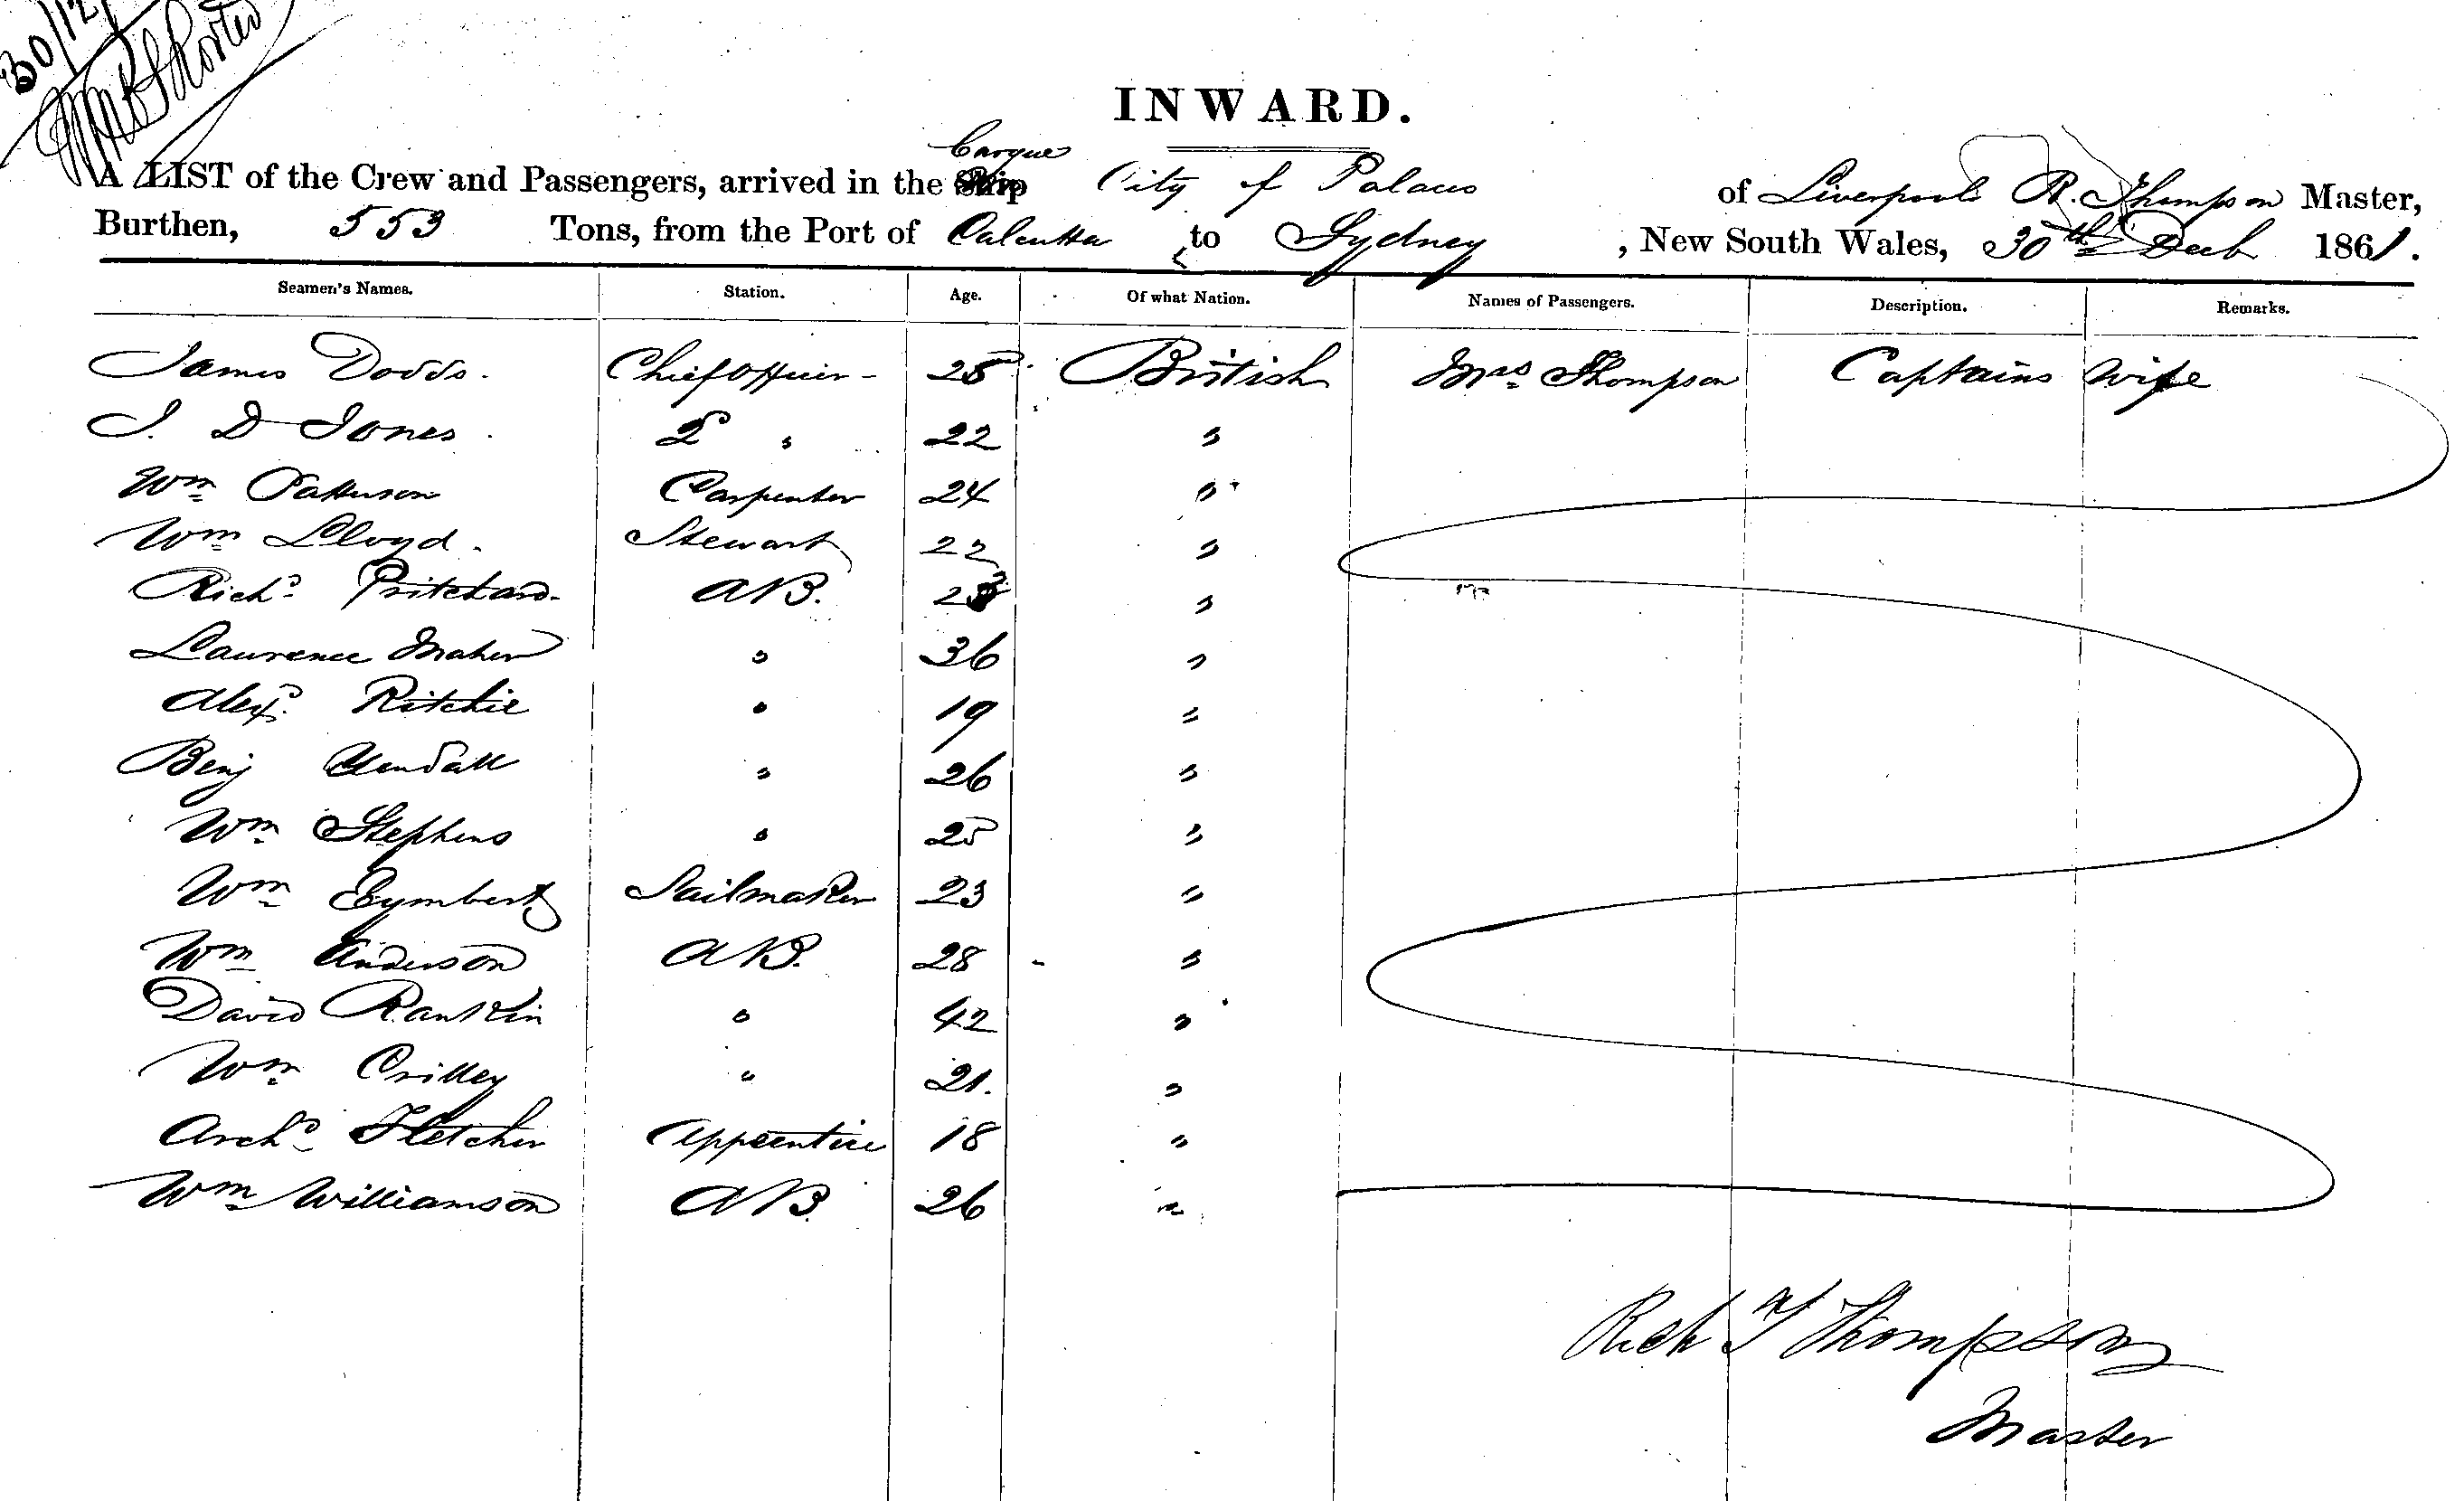 30/12
INWARD.
Barque
A LIST of the Crew and Passengers, arrived in the Ship City of Palaces of Liverpool R. Thompson Master,
Burthen, 553 Tons, from the Port of Calcutta to Sydney, New South Wales, 30th Decb 1861.
Seamen's Names. Station. Age. Of what Nation. Names of Passengers. Description. Remarks.
James Dodds. Chief Officer 25 British Mrs Thompson Captains wife
J. D Jones. 2d " 22 "
Wm Patterson Carpenter 24 "
Wm Lloyd. Stewart 22 "
Richd Pritchard. AB. 23 "
Laurence Maher " 36 "
Alexr Ritchie " 19 "
Benj Yendall " 26 "
Wm Stephens " 25 "
Wm Sailmaker 23 "
Wm Anderson AB. 28 "
David Rankin " 42 "
Wm Crilley " 21. "
Archd Fletcher Apprentice 18 "
Wm Williamson AB. 26 "
Rich Thompson
Master